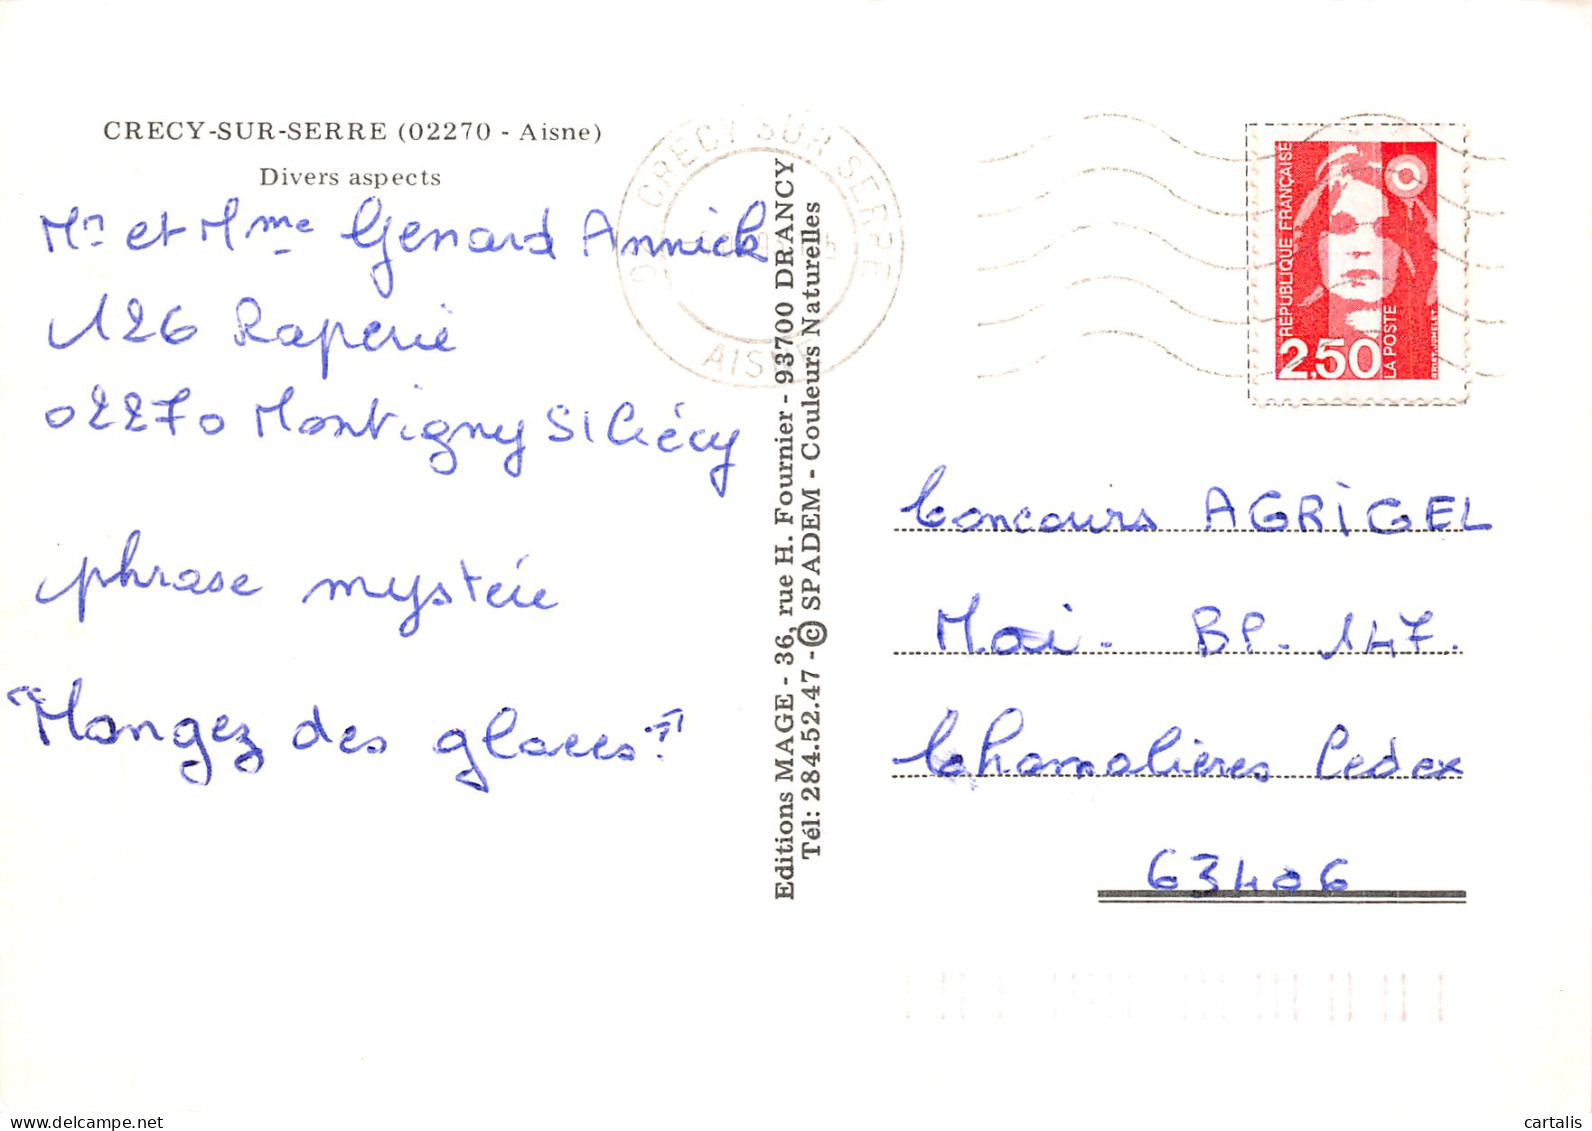 CRECY-SUR-SERRE (02270 - Aisne)
Divers aspects
Mr et Mme Genard Annick
126 Raperie
02270 Montigny S/ Crécy
phrase mystère
"Mangez des glaces"
Editions MAGE - 36, rue H. Fournier - 93700 DRANCY
Tél: 284.52.47 - © SPADEM - Couleurs Naturelles
CRECY SUR SERRE
AISNE
REPUBLIQUE FRANÇAISE
2,50
LA POSTE
BRIAT.JUMELET.
Concours AGRIGEL
Mai - BP - 147.
Chamalières Cedex
63406
delcampe.net
cartalis